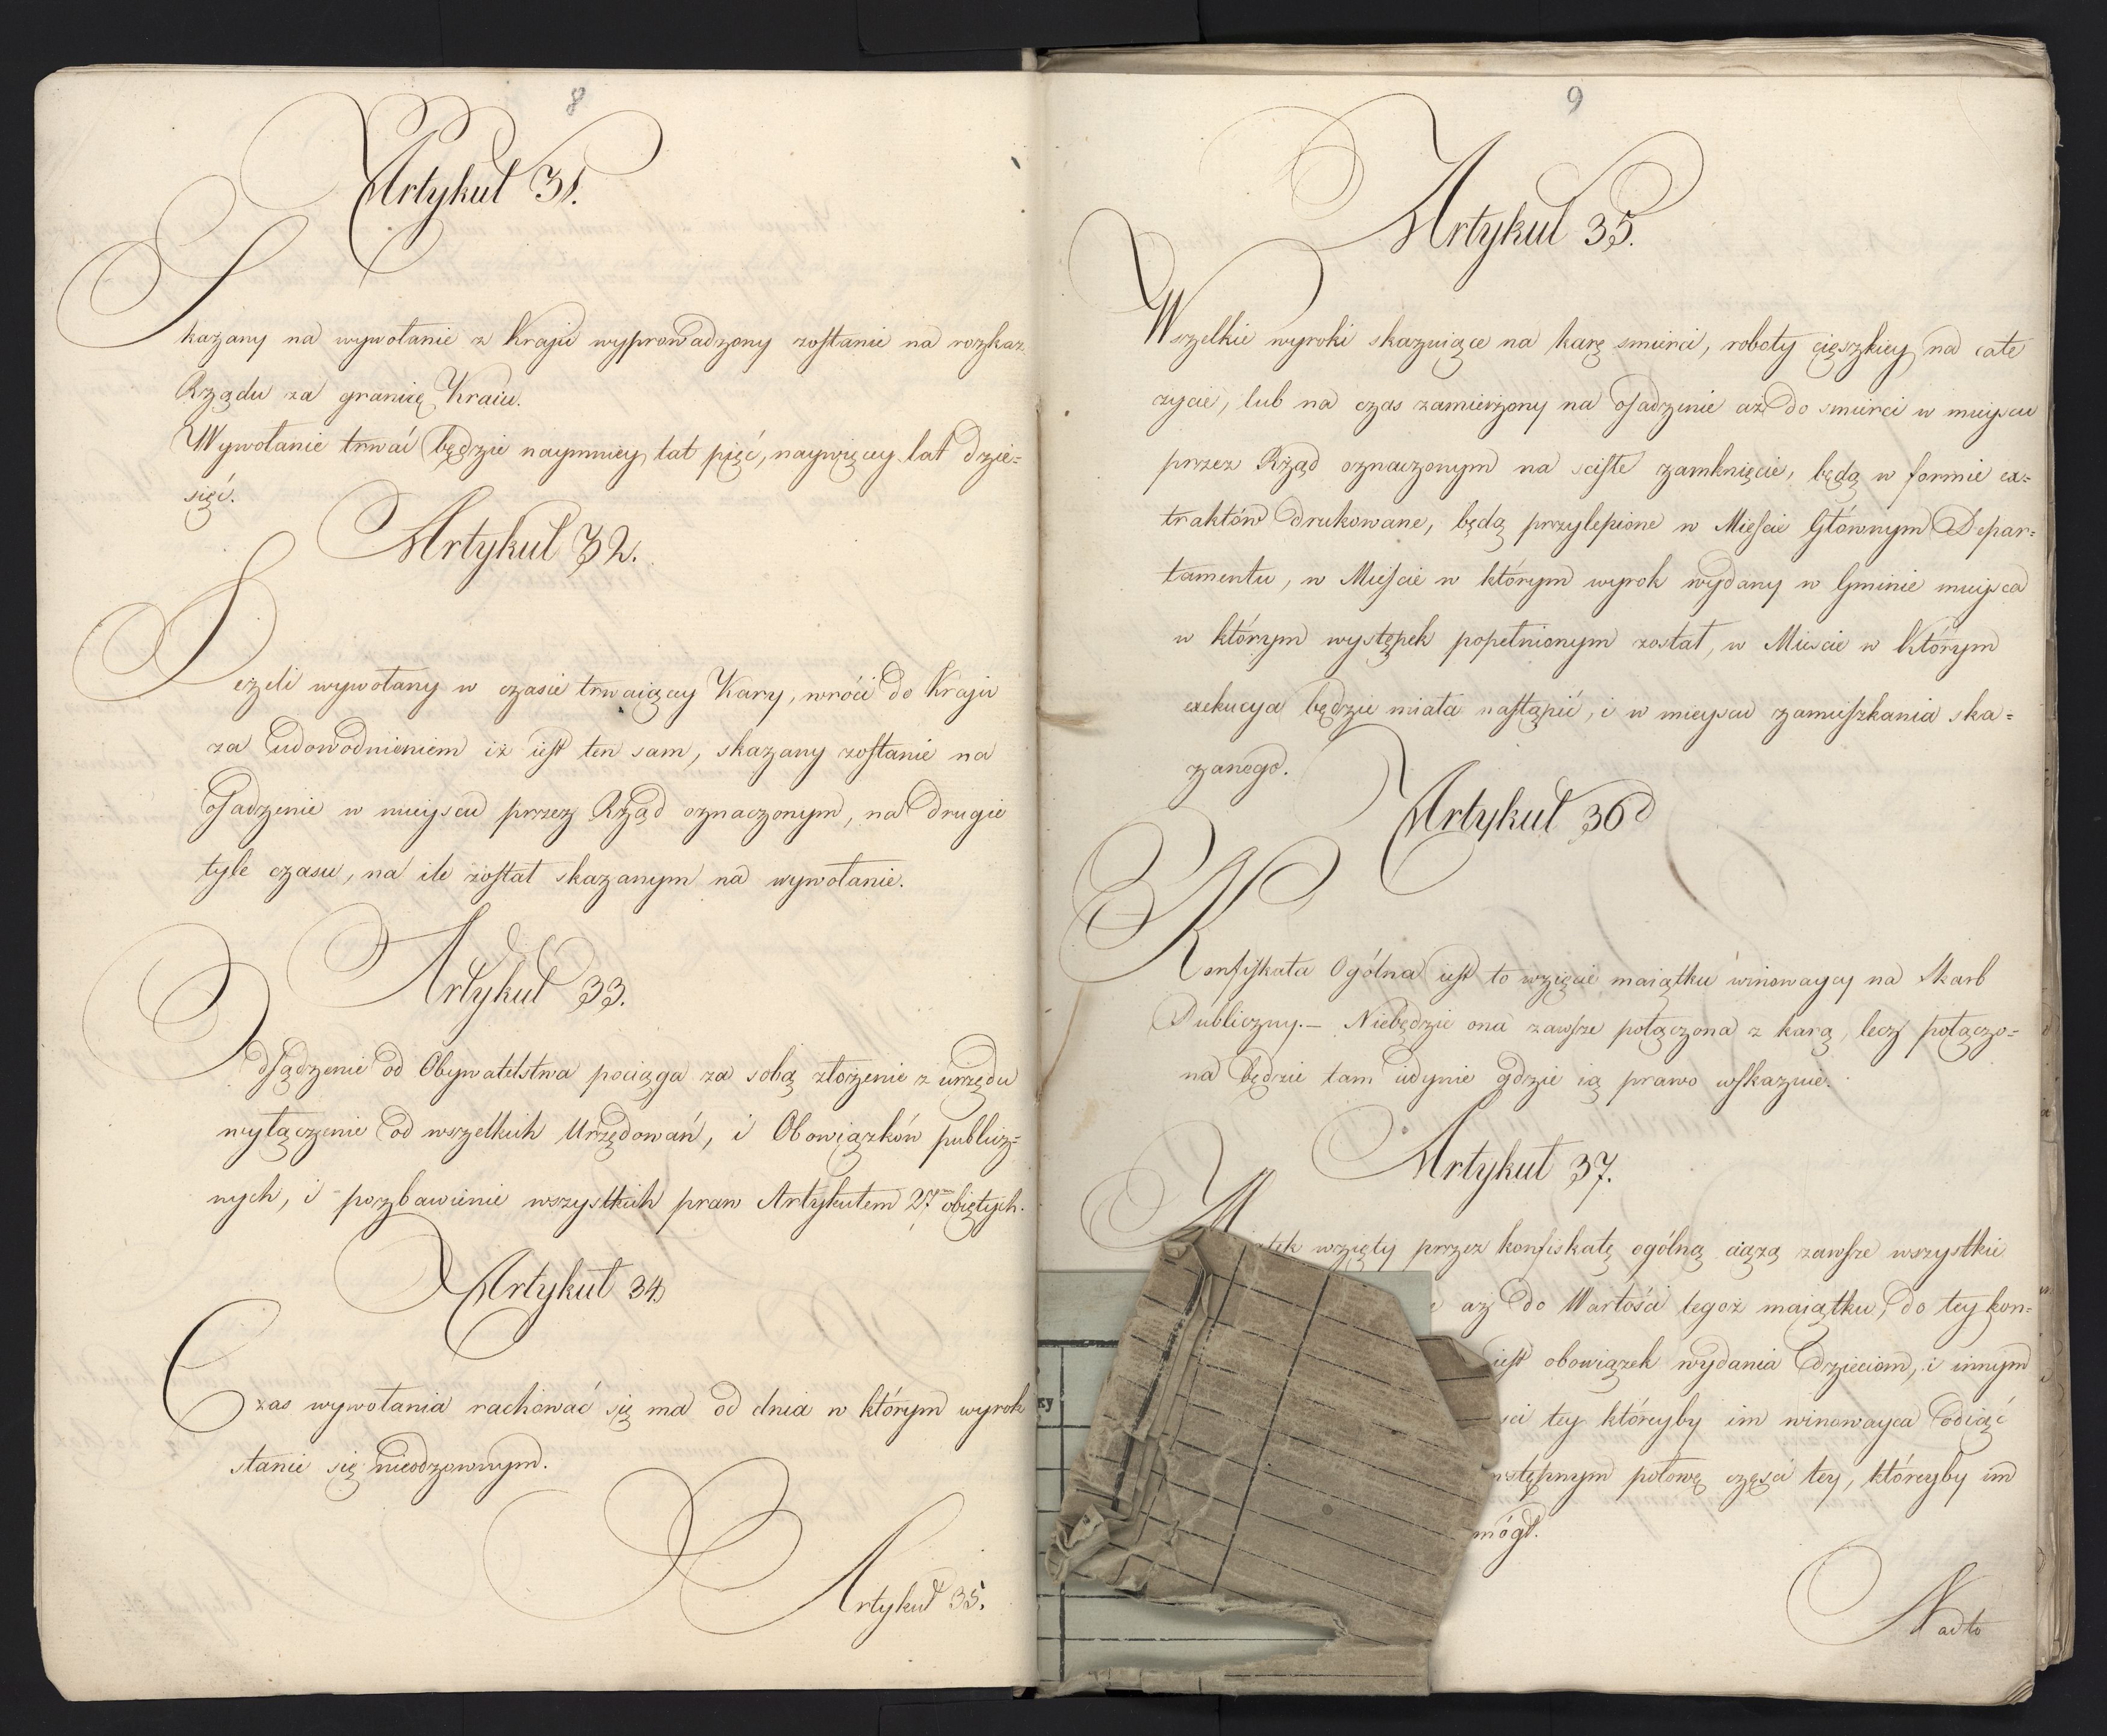 8
Artykuł 31.
Skazany na wywołanie z Kraju wyprowadzony zostanie na rozkaz
Rządu za granicę Kraiu.
Wywołanie trwać będzie naymniey lat pięć, naywięcey lat dzie=
sięć.
Artykuł 32.
Jeżeli wywołany w czasie trwaiącey Kary, wróci do Kraju
za udowodnieniem iż iest ten sam, skazany zostanie na
Osadzenie w mieyscu przez Rząd oznaczonym, na drugie
tyle czasu, na ile został skazanym na wywołanie.
Artykuł 33.
Odsądzenie od Obywatelstwa pociąga za sobą złożenie z urzędu
wyłączenie od wszelkich Urzędowań, i Obowiązków publicz=
nych, i pozbawienie wszystkich praw Artykułem 27m obiętych.
Artykuł 34
Czas wywołania rachować się ma od dnia w którym wyrok
stanie się nieodzownym.
Artykuł 35.
9
Artykuł 35.
Wszelkie wyroki skazuiące na karę smierci, roboty cięszkiey na całe
życie, lub na czas zamierzony na osadzenie aż do smierci w mieyscu
przez Rząd oznaczonym na scisłe zamknięcie, będą w formie ex=
traktów drukowane, będą przylepione w Mieście Głównym Depar=
tamentu, w Mieście w którym wyrok wydany w Gminie mieysca
w którym występek popełnionym został, w Mieście w którym
exekucya będzie miała nastąpić, i w mieyscu zamieszkania ska=
zanego.
Artykuł 36
Konfiskata Ogólna iest to wzięcie maiątku winowaycy na Skarb
Publiczny.— Niebędzie ona zawsze połączona z karą, lecz połączo=
na będzie tam iedynie gdzie ią prawo wskazuie.
Artykuł 37.
wzięty przez konfiskatę ogólną ciążą zawsze wszystkie
aż do Wartości tegoż maiątku, do tey kon=
iest obowiązek wydania dzieciom, i innym
tey któreyby im winowayca odiąć
połowę części tey, któreyby im
mógł.
Nadto